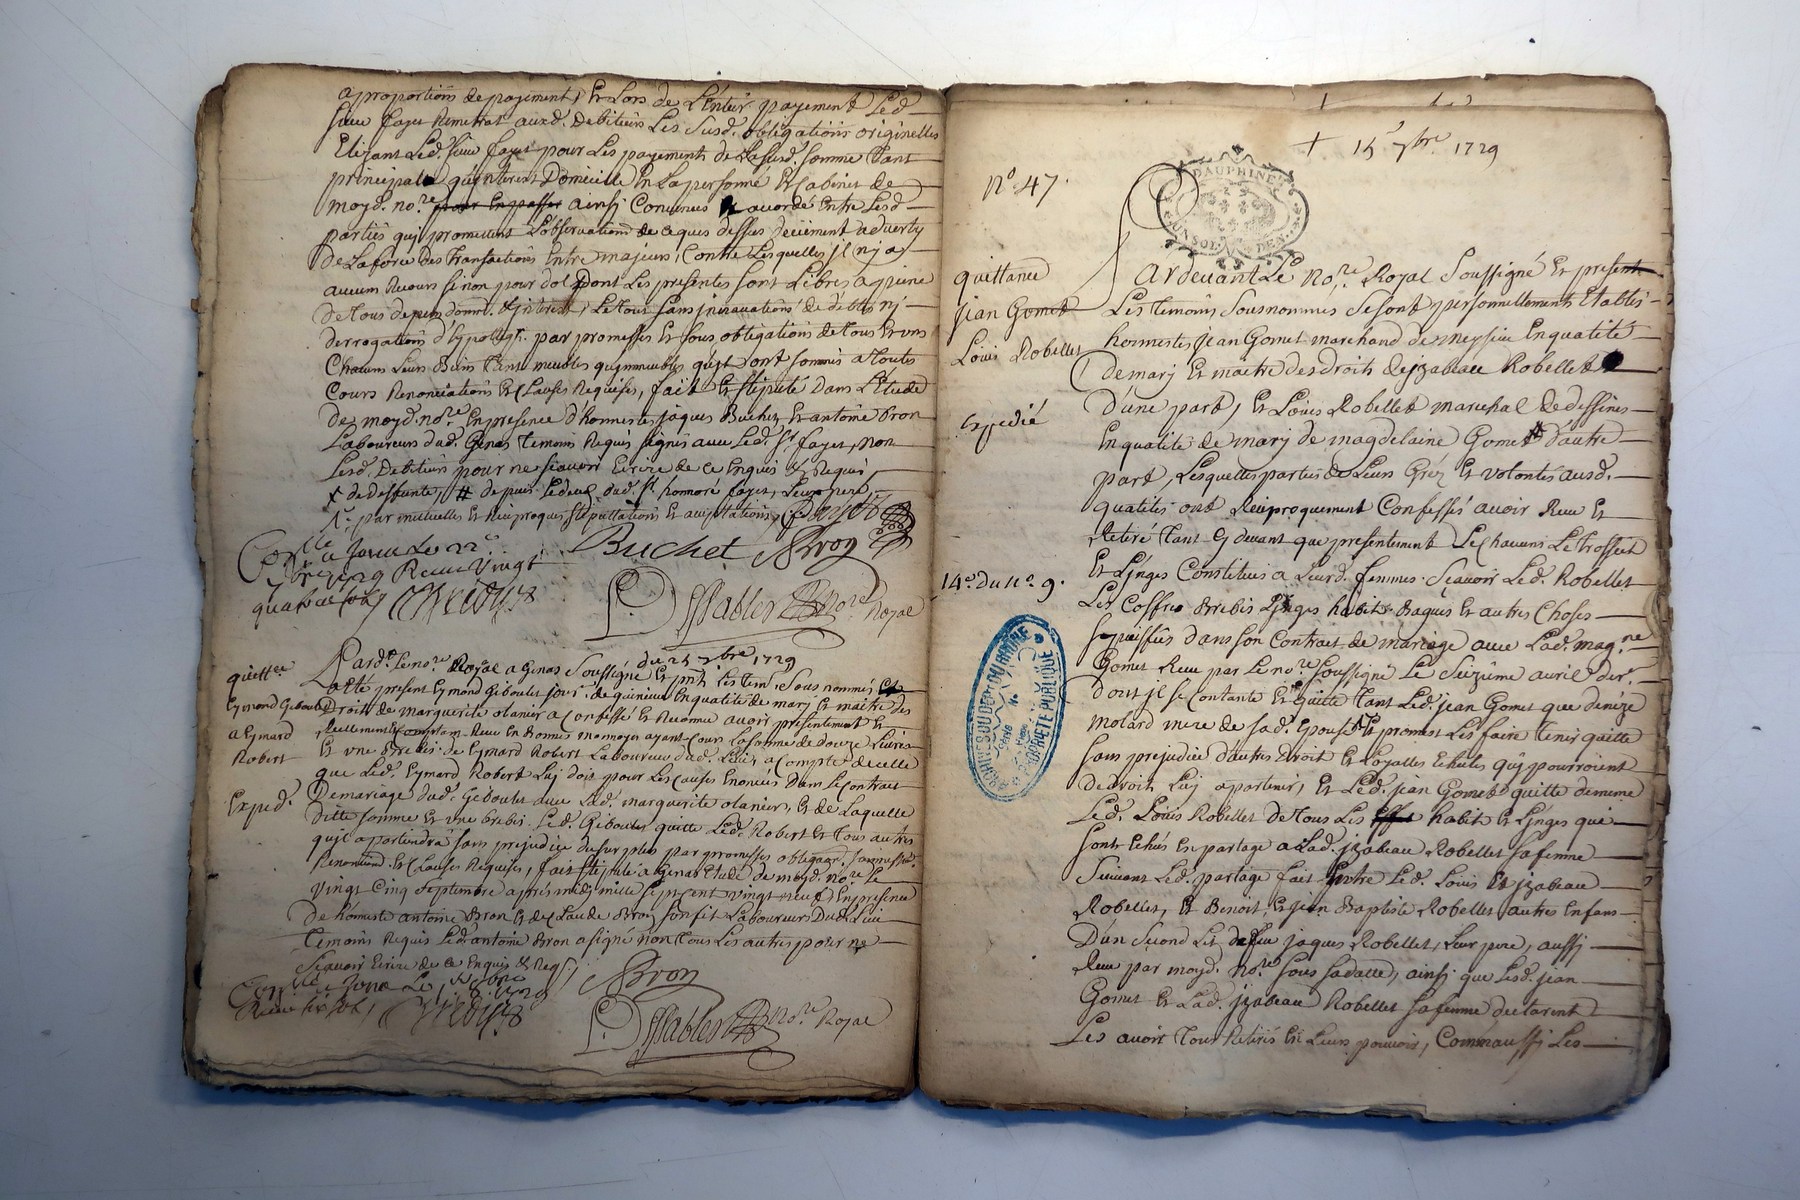 aproportions de payement, Et Lors de L'Entier payement Led.
sieur fayet Remettrat auxd. Debiteurs Les Susd. obligations originelles
Elizant Led. sieur fayet pour Les payements de Lasusd. somme tant
principale qu'interest Domicille En La personne Et Cabinet de
moyd. no.re ainsi Convenus Et accordé Entre Lesd.
parties quj promettent L'observation de ce que dessus deüement adverty
de La force des Transactions Entre majeurs, Contre Lesquelles jl n'j a
aucun Recours si non pour dol Dont Les presentes sont
de tous depens domm. Et interest, Le tout sans jnnovations de debte nj
derrogations d'hypotheque. par promesses Et sous obligations de tous Et uns
Chacuns Leurs Biens meubles quj immeubles quj Sont sommis a toutes
Cours Renonciations Et Clauses Requises, fait Et stipulé Dans L'Etude
de moyd. no.re En presence d'honnestes jaques Buchet Et antoine Bron
Laboureurs dud. Genas temoins Requis signés avec Led. Sr. fayet, Non
Lesd. Debiteurs pour ne sçavoir Ecrire de ce Enquis & Requis
de deffunte, # depuis Ledeces dud. Sr. honnoré fayet, Leur pere,
par mutuelles Et Reciproques stipullations Et acceptations, Fayet
Buchet ABron
Con.lle a Jona Le 22.e
7bre 1729 Receu Vingt
quatre sols
Dessables No.re Royal
quitt.ce
du 25 7bre 1729
Pard.t Le no.re Royal a Genas Soussigné Et pnts Les tem. Sous nommés
a Eté present Eymond Geboulet de quirieu Enqualité de marj Et maitre des
Eymond Geboulet
a Eymard
Robert
Droits de marguerite olanier a Confessé Et Reconnu avoir presentement Et
Reellement Receu En bonnes monnoyes ayant Cours La somme de douze Livres
Et une Brebis. de Eymard Robert Laboureur dud. Lieu, a Compte de celle
que Led. Eymard Robert Luj doit pour Les Causes Enoncées Dans Le Contrait
Exped.
De mariage dud. Geboulet avec Lad. marguerite olanier, Et de Laquelle
ditte somme Et une brebis. Led. Geboulet quitte Led. Robert Et tous autres
qu'il apartiendra sans prejudice du surplus par promesses
Renonciaons. Et Clauses Requises, fait stipulé a Genas Etude de moyd. no.re Le
Vingt Cinq Septembre apres midy mille sept cent vingt neuf En presence
De honneste antoine Bron Et de Claude Bron son fils Laboureurs Dud. Lieu
temoins Requis Led. antoine Bron a signé non tous Les autres pour ne
Scavoir Ecrire de ce Enquis & Req.
ABron
Dessables No.re Royal
+ 15 7bre 1729
N.o 47.
DAUPHINE
UN SOL DEN
Pardevant Le No.re Royal Soussigné Et present
quittance
jean Gomet
Louis Robellet
Les temoins Sousnommés Se sont personnellements Etablis
honnestes jean Gomet marchand de meyssieu Enqualité
De marj Et maitre des droits de jzabeau Robellet
D'une part, Et Louis Robellet marechal de dessines
Expedié
Enqualité de marj de magdelaine Gomet # d'autre
part, Lesquelles parties de Leurs Gréz Et volontés ausd.
qualités ont Reciproquement Confessés avoir Receu Et
Retiré tant Cy devant que presentement Le Chacuns Le trossect
14.e Du N.o 9.
Et Linges Constitues a Leurd. femmes. Sçavoir Led. Robellet
Les Coffres Brebis Linges habits Bagues Et autres Choses
ARCHIVES DU DEPT DU RHONE
PROPRIÉTÉ PUBLIQUE
Spéciffiés dans son Contrait de mariage avec Lad. mag.ne
Gomet Receu par Le no.re Soussigné Le Seizième avril der.
dont jl se Contante Et quitte tant Led. jean Gomet que denéze
molard mere de sad. Epouse Et promet Les faire tenir quitte
sans prejudice d'autres Droit Et Loyalles Echutes quj pourroient
de droits Luj apartenir, Et Led. jean Gomet quitte de meme
Led. Louis Robellet De tous Les habits Et Linges que
sont Echus En partage a Lad. jzabeau Robellet sa femme
Suivant Led. partage fait Entre Led. Louis Et jzabeau
Robellet, Et Benoit, Et jean Baptiste Robellet autres Enfans
D'un Second Lit de feu jaques Robellet, Leur pere, aussj
Receu par moyd. No.re Sous sa datte, ainsi que Lesd. jean
Gomet Et Lad. jzabeau Robellet sa femme declarent
Les avoir tous Retirés En Leurs pouvoir, Comm'aussi Les